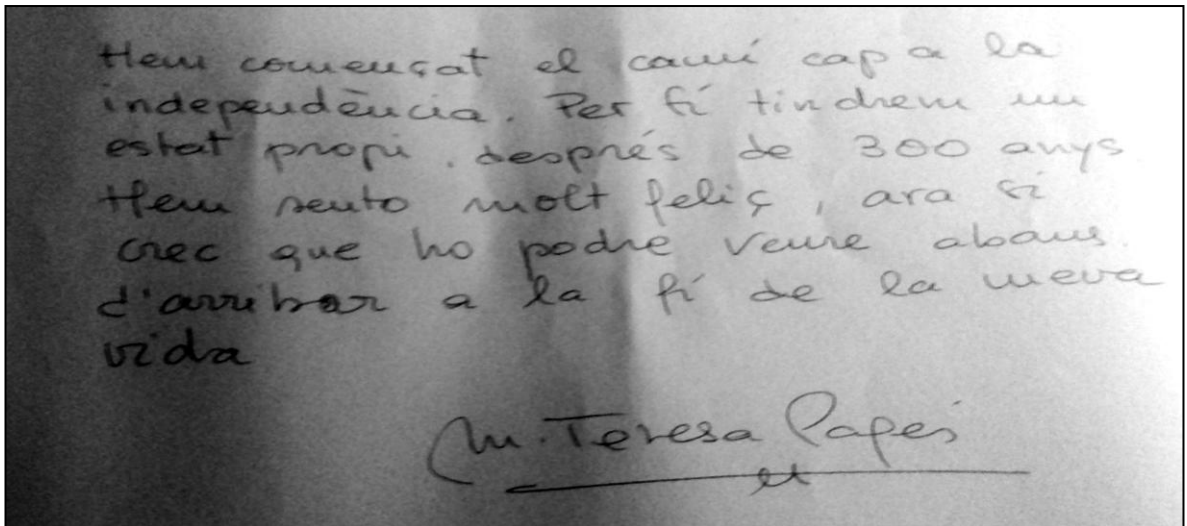 Hem començat el camí cap a la
independència. Per fí tindrem un
estat propi. després de 300 anys
Hem sento molt feliç, ara si
crec que ho podre veure abans
d'arribar a la fí de la meva
vida
M. Teresa Pagés